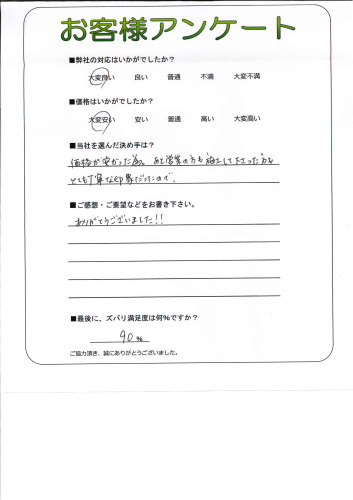 お客様アンケート
■弊社の対応はいかがでしたか？
大変良い 良い 普通 不満 大変不満
■価格はいかがでしたか？
大変安い 安い 普通 高い 大変高い
■当社を選んだ決め手は？
価格が安かった為。あと営業の方も施工して下さった方も
とても丁寧な印象だったので。
■ご感想・ご要望などをお書き下さい。
ありがとうございました!!
■最後に、ズバリ満足度は何％ですか？
90 %
ご協力頂き、誠にありがとうございました。